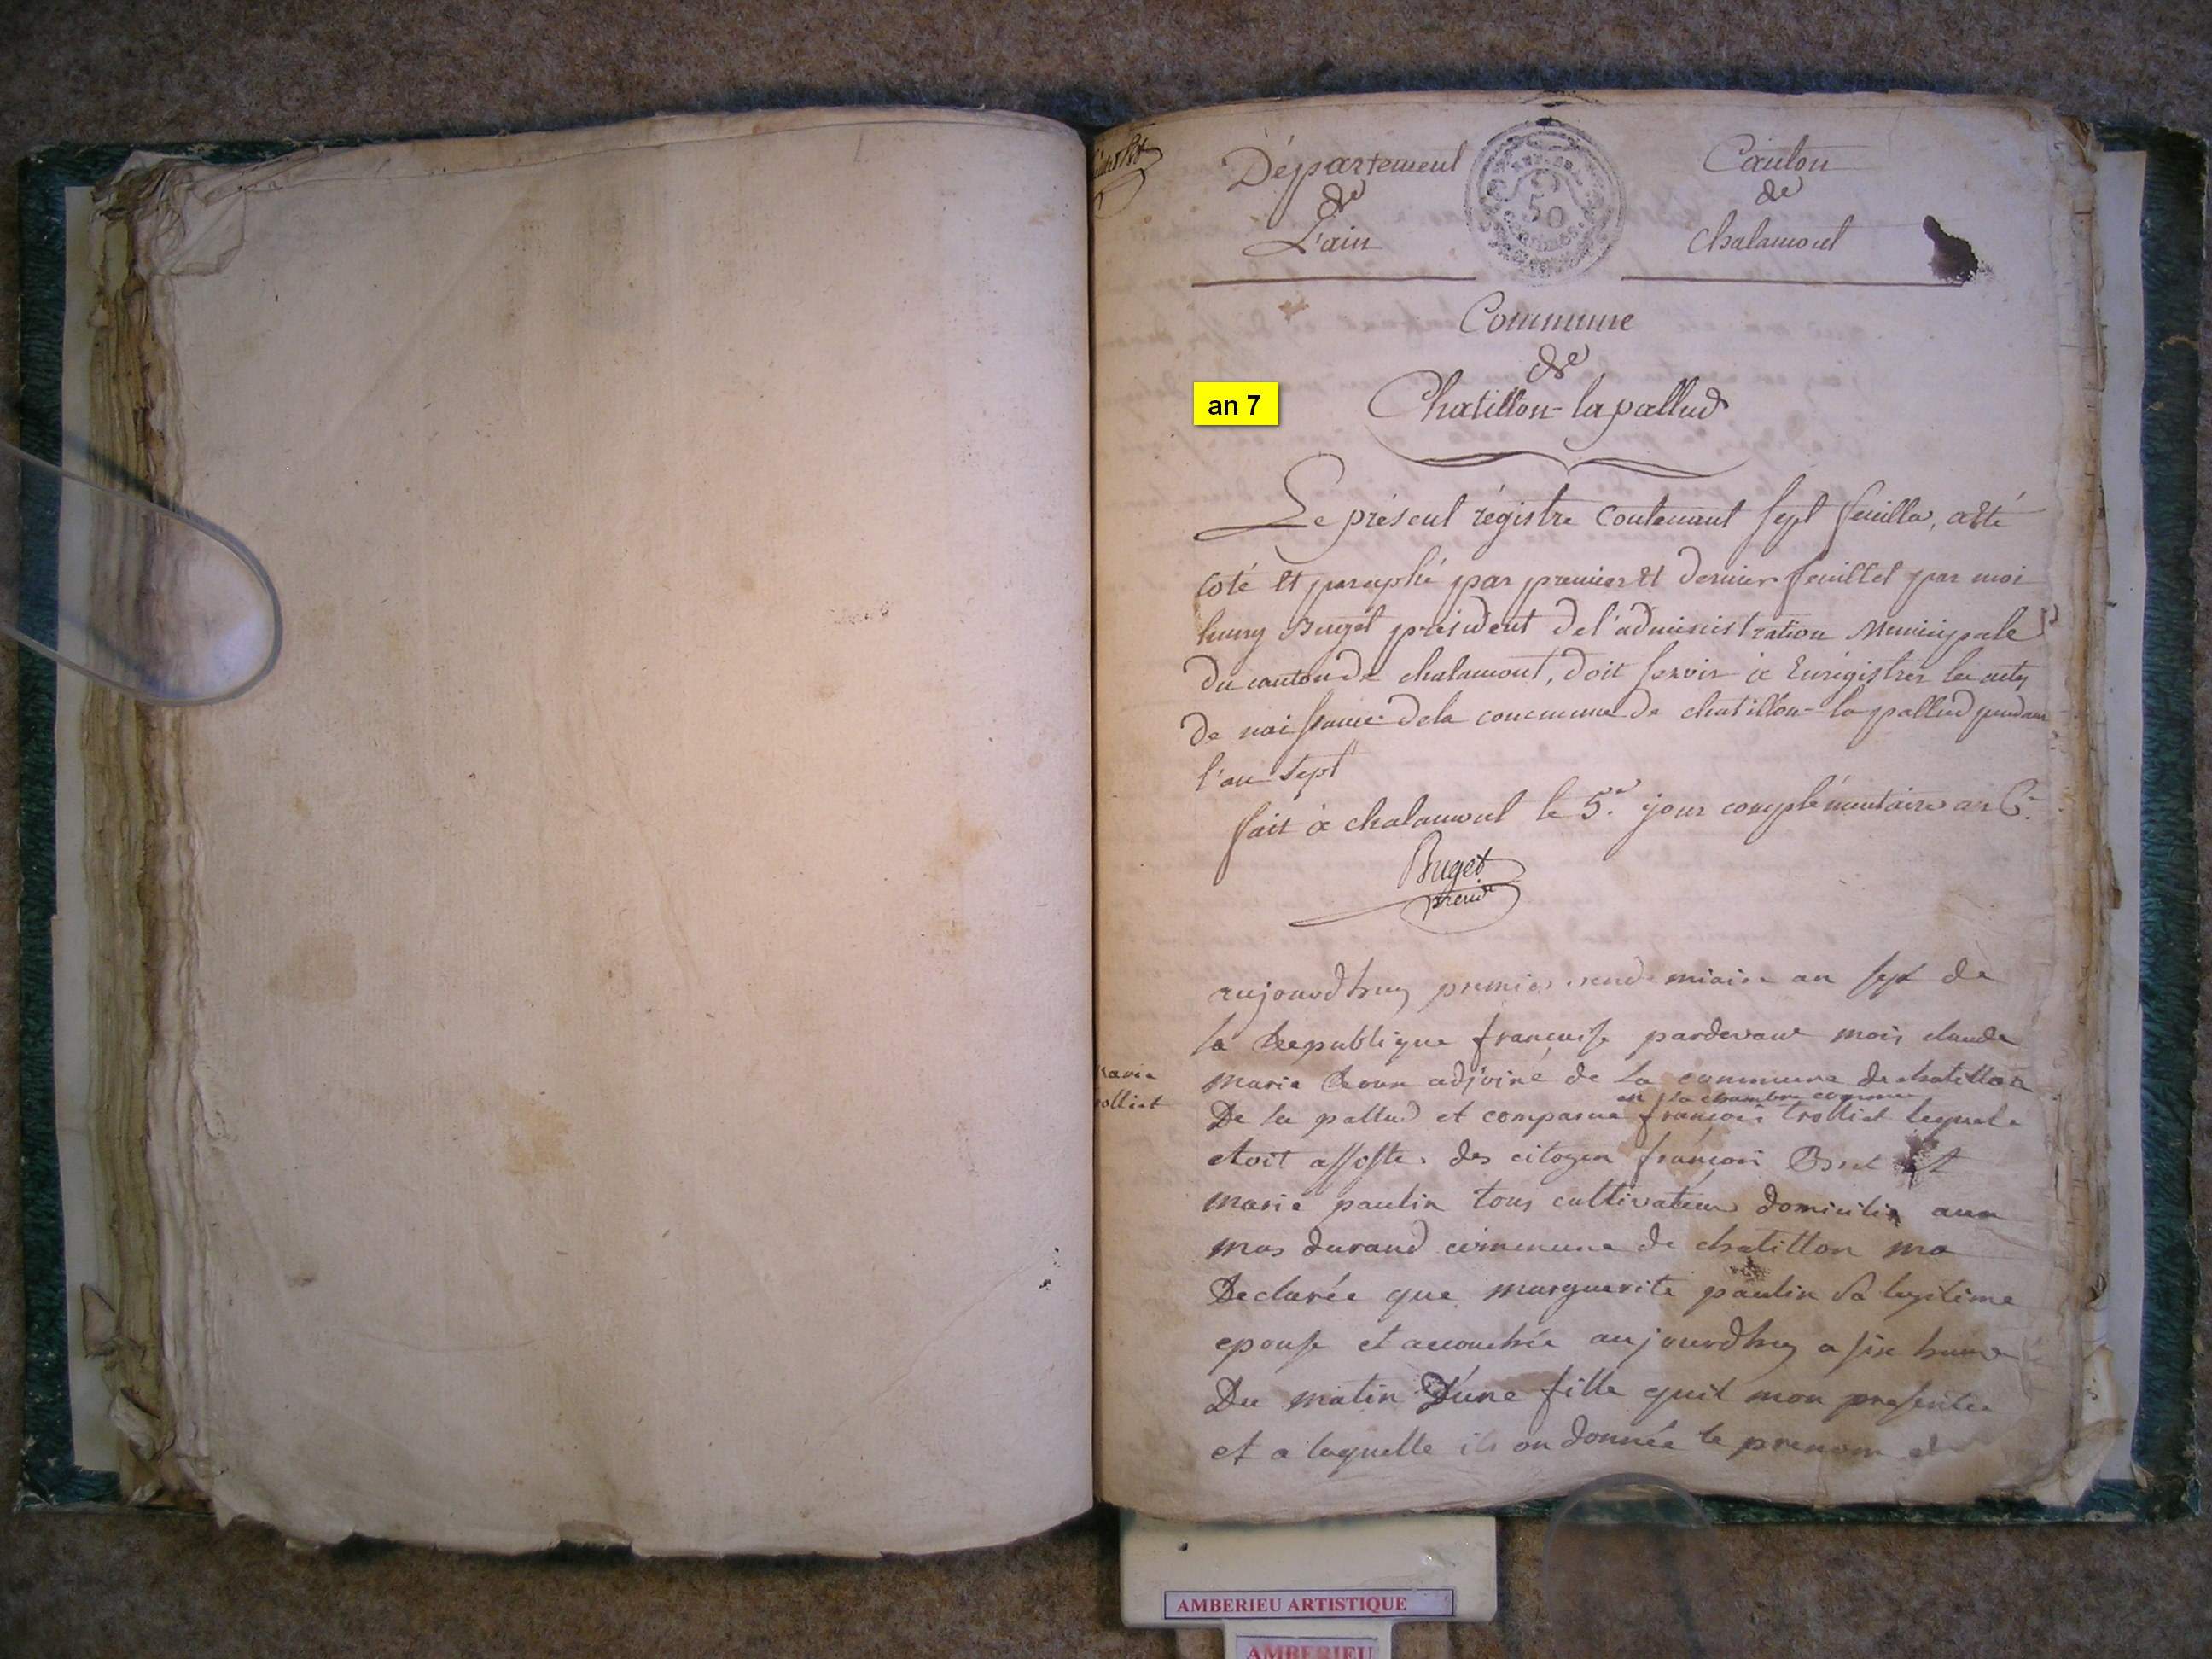 Département
de
L'ain
50
Canton
de
chalamont
Commune
de
Chatillon-lapallud
an 7
Le présent régistre contenant sept feuillets, a été
coté et paraphé par premier et dernier feuillet par moi
henry Buget président de l'administration Municipale
du canton de chalamont, doit servir à Enrégistrer les actes
de naissance de la commune de chatillon-lapallud pendant
l'an sept
fait à chalamont le 5.e jour complémentaire an 6.
Buget
presid
aujourdhuy premier vendemiaire an sept de
la Republique francaise pardevant mois claude
marie adjoint de la commune de chatillon
De la pallud et comparue francois trolliet lequel
en la chambre commune
etoit assiste des citoyen françois et
marie paulin tous cultivateur domicilie aux
mas durand commune de chatillon ma
Declarée que marguerite paulin sa legitime
epouse et accouchée aujourdhuy a six heure
Du matin D'une fille quil mon presentée
et a laquelle ils on donnée le prenom de
marie
trolliet
AMBERIEU ARTISTIQUE
AMBERIEU